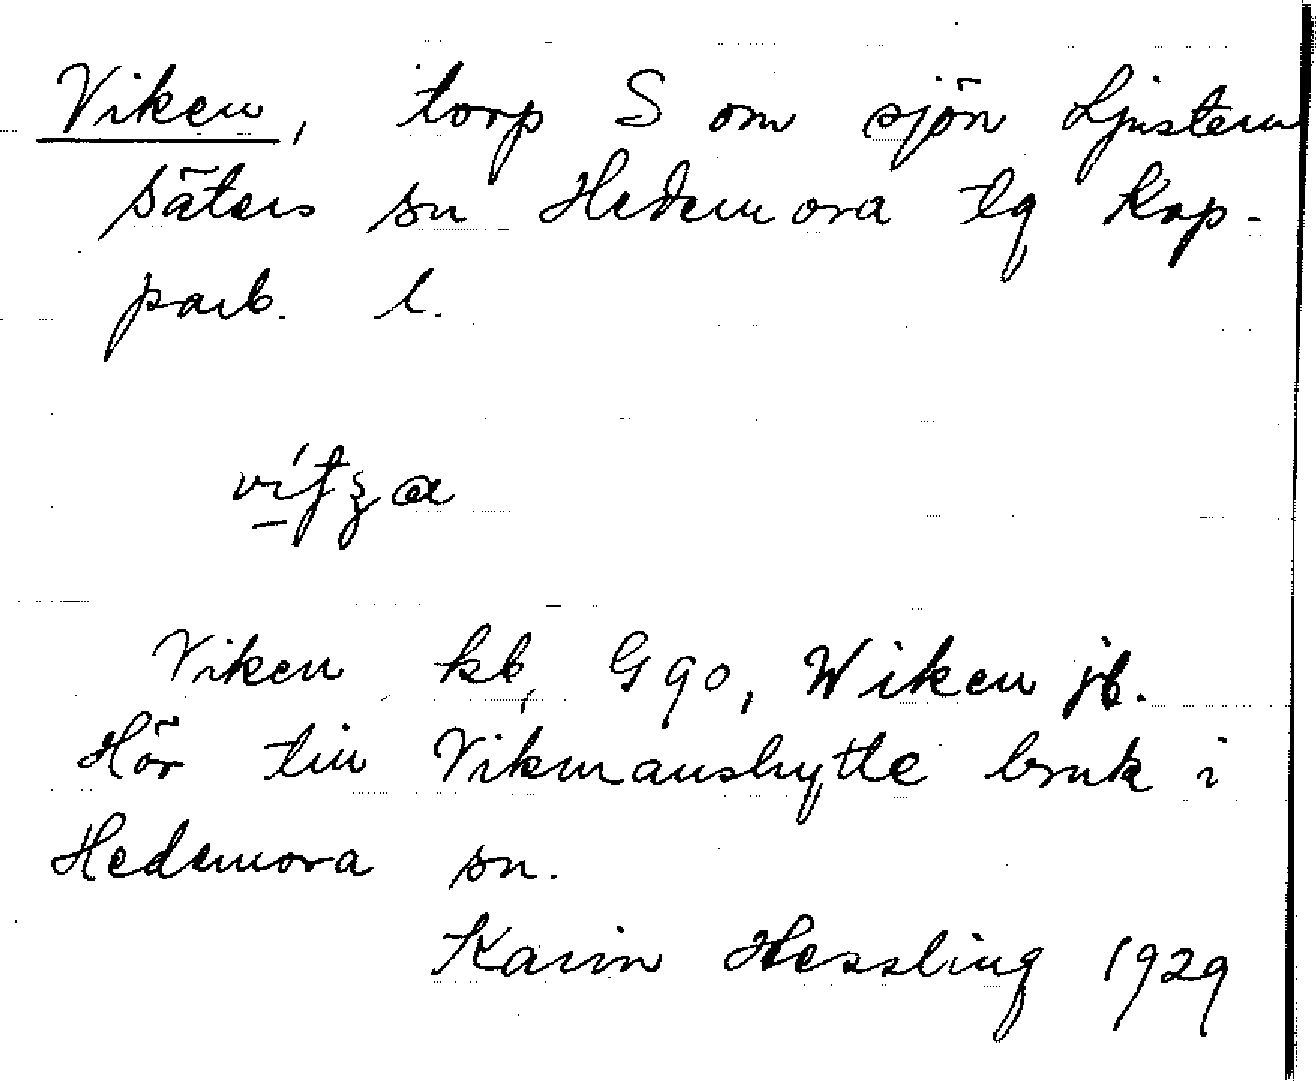 Viken, torp S om sjön Ljustern
Säters sn Hedemora tg Kop-
parb. l.
Viken kb, G 90, Wiken jb.
Hör till Vikmanshytte bruk i
Hedemora sn.
Karin Hessling 1929